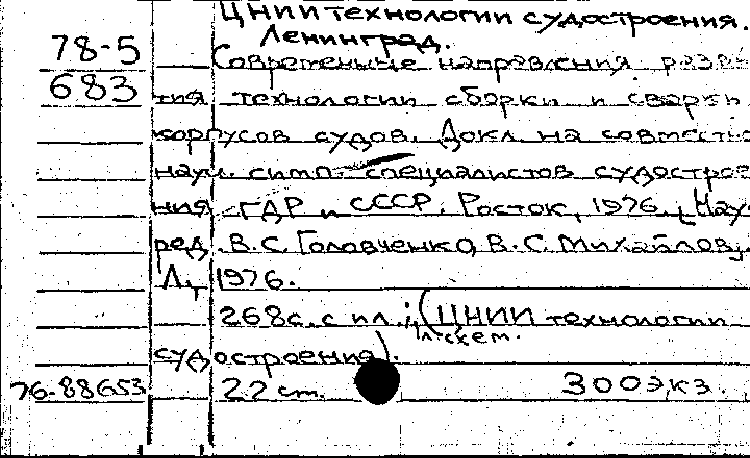 ЦНИИ технологии судостроения.
Ленинград.
78-5
Современные направления разви
683
тия технологии сборки и сварки
корпусов судов. Докл на совместн
науч. симп. специалистов судострое
ния ГДР и СССР. Росток, 1976. [Науч
ред. В.С. Головченко, В.С. Михайлов].
Л., 1976.
268с. с ил.; (ЦНИИ технологии
судостроения).
76-88653
22 см.
300экз.